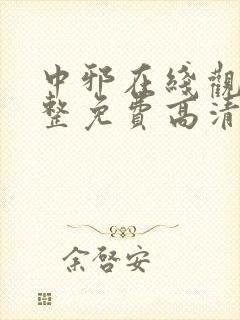 中邪在綫觀
整免費高清
余啓安